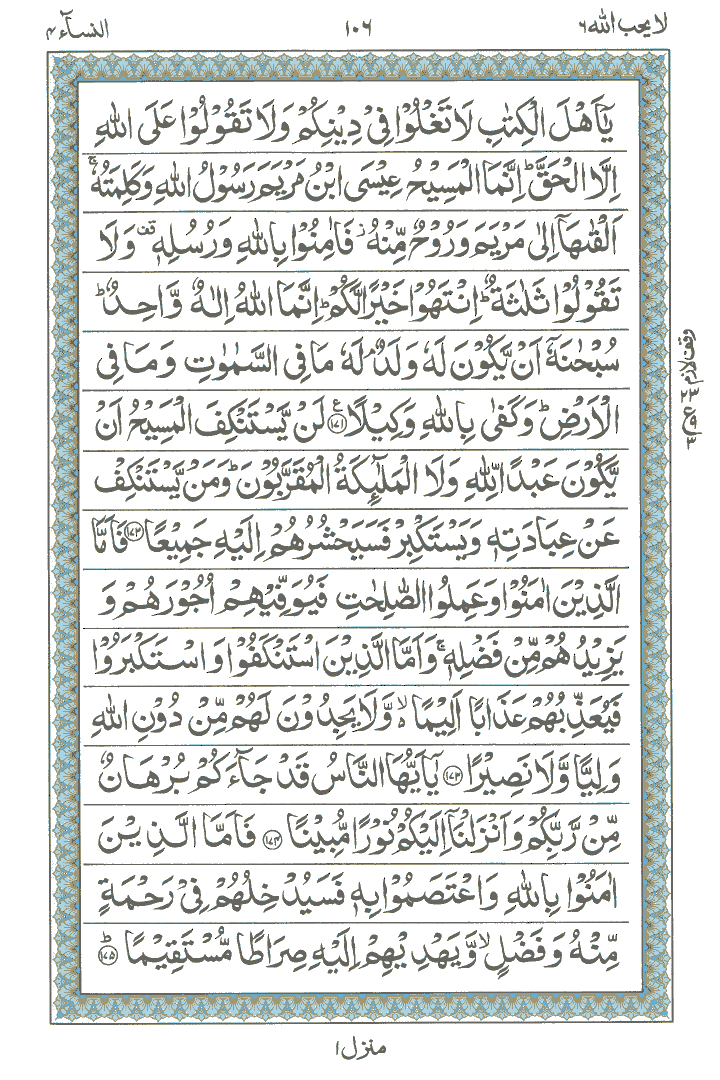 لا يحب الله ٦
١٠٦
النسآء ٤
يٰۤاَهْلَ الْكِتٰبِ لَا تَغْلُوْا فِىْ دِيْنِكُمْ وَلَا تَقُوْلُوْا عَلَى اللّٰهِ
اِلَّا الْحَقَّ ؕ اِنَّمَا الْمَسِيْحُ عِيْسَى ابْنُ مَرْيَمَ رَسُوْلُ اللّٰهِ وَكَلِمَتُهٗ ۚ
اَلْقٰىهَاۤ اِلٰى مَرْيَمَ وَرُوْحٌ مِّنْهُ ؗ فَاٰمِنُوْا بِاللّٰهِ وَرُسُلِهٖ ۟ وَلَا
تَقُوْلُوْا ثَلٰثَةٌ ؕ اِنْتَهُوْا خَيْرًا لَّكُمْ ؕ اِنَّمَا اللّٰهُ اِلٰهٌ وَّاحِدٌ ؕ
سُبْحٰنَهٗۤ اَنْ يَّكُوْنَ لَهٗ وَلَدٌ ۘ لَهٗ مَا فِى السَّمٰوٰتِ وَمَا فِى
الْاَرْضِ ؕ وَكَفٰى بِاللّٰهِ وَكِيْلًا ﴿۱۷۱﴾ ع لَنْ يَّسْتَنْكِفَ الْمَسِيْحُ اَنْ
يَّكُوْنَ عَبْدًا لِّلّٰهِ وَلَا الْمَلٰٓئِكَةُ الْمُقَرَّبُوْنَ ؕ وَمَنْ يَّسْتَنْكِفْ
عَنْ عِبَادَتِهٖ وَيَسْتَكْبِرْ فَسَيَحْشُرُهُمْ اِلَيْهِ جَمِيْعًا ﴿۱۷۲﴾ فَاَمَّا
الَّذِيْنَ اٰمَنُوْا وَعَمِلُوا الصّٰلِحٰتِ فَيُوَفِّيْهِمْ اُجُوْرَهُمْ وَ
يَزِيْدُهُمْ مِّنْ فَضْلِهٖ ۚ وَاَمَّا الَّذِيْنَ اسْتَنْكَفُوْا وَاسْتَكْبَرُوْا
فَيُعَذِّبُهُمْ عَذَابًا اَلِيْمًا ۙ۬ وَّلَا يَجِدُوْنَ لَهُمْ مِّنْ دُوْنِ اللّٰهِ
وَلِيًّا وَّلَا نَصِيْرًا ﴿۱۷۳﴾ يٰۤاَيُّهَا النَّاسُ قَدْ جَآءَكُمْ بُرْهَانٌ
مِّنْ رَّبِّكُمْ وَاَنْزَلْنَاۤ اِلَيْكُمْ نُوْرًا مُّبِيْنًا ﴿۱۷۴﴾ فَاَمَّا الَّذِيْنَ
اٰمَنُوْا بِاللّٰهِ وَاعْتَصَمُوْا بِهٖ فَسَيُدْخِلُهُمْ فِىْ رَحْمَةٍ
مِّنْهُ وَفَضْلٍ ۙ وَّيَهْدِيْهِمْ اِلَيْهِ صِرَاطًا مُّسْتَقِيْمًا ؕ ﴿۱۷۵﴾
وقف لازم
منزل ١